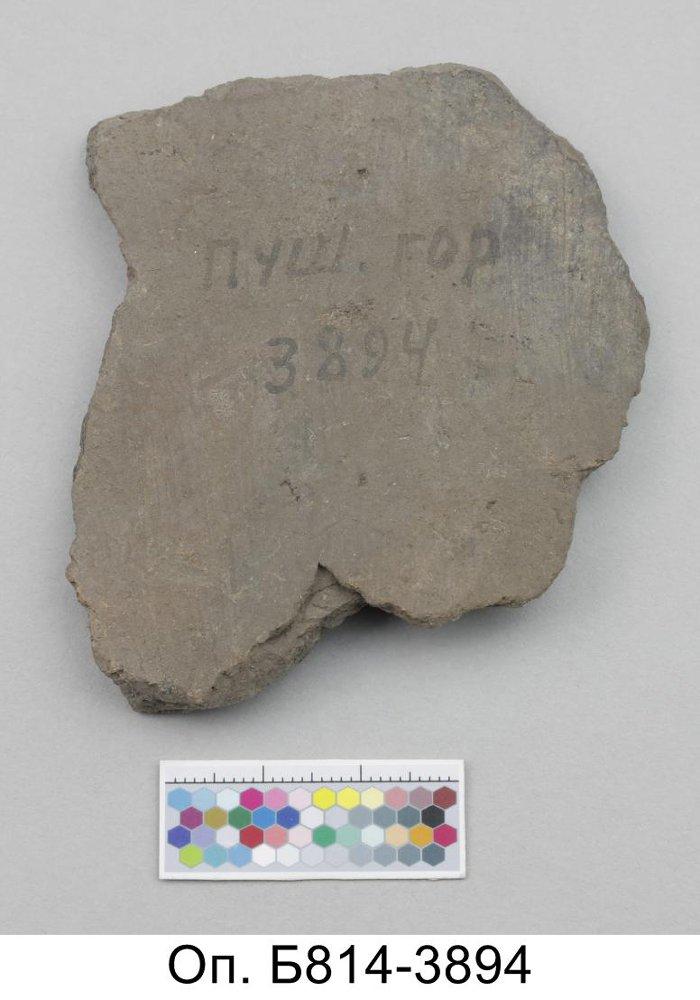 ПУШ. ГОР
3894
Оп. Б814-3894